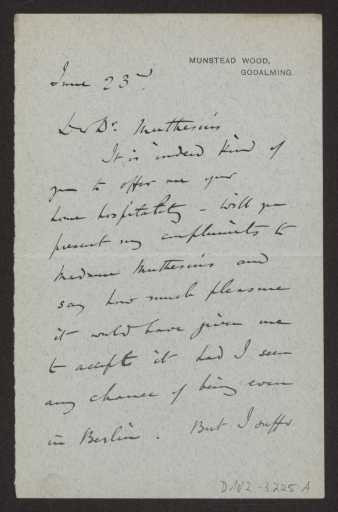 MUNSTEAD WOOD,
GODALMING.
June 23rd.
Dr Dr. Muthesius
It is indeed kind of
you to offer me your
home hospitality – will you
present my compliments to
Madame Muthesius and
say how much pleasure
it would have given me
to accept it had I seen
any chance of being even
in Berlin. But I suffer
D102-3225 A